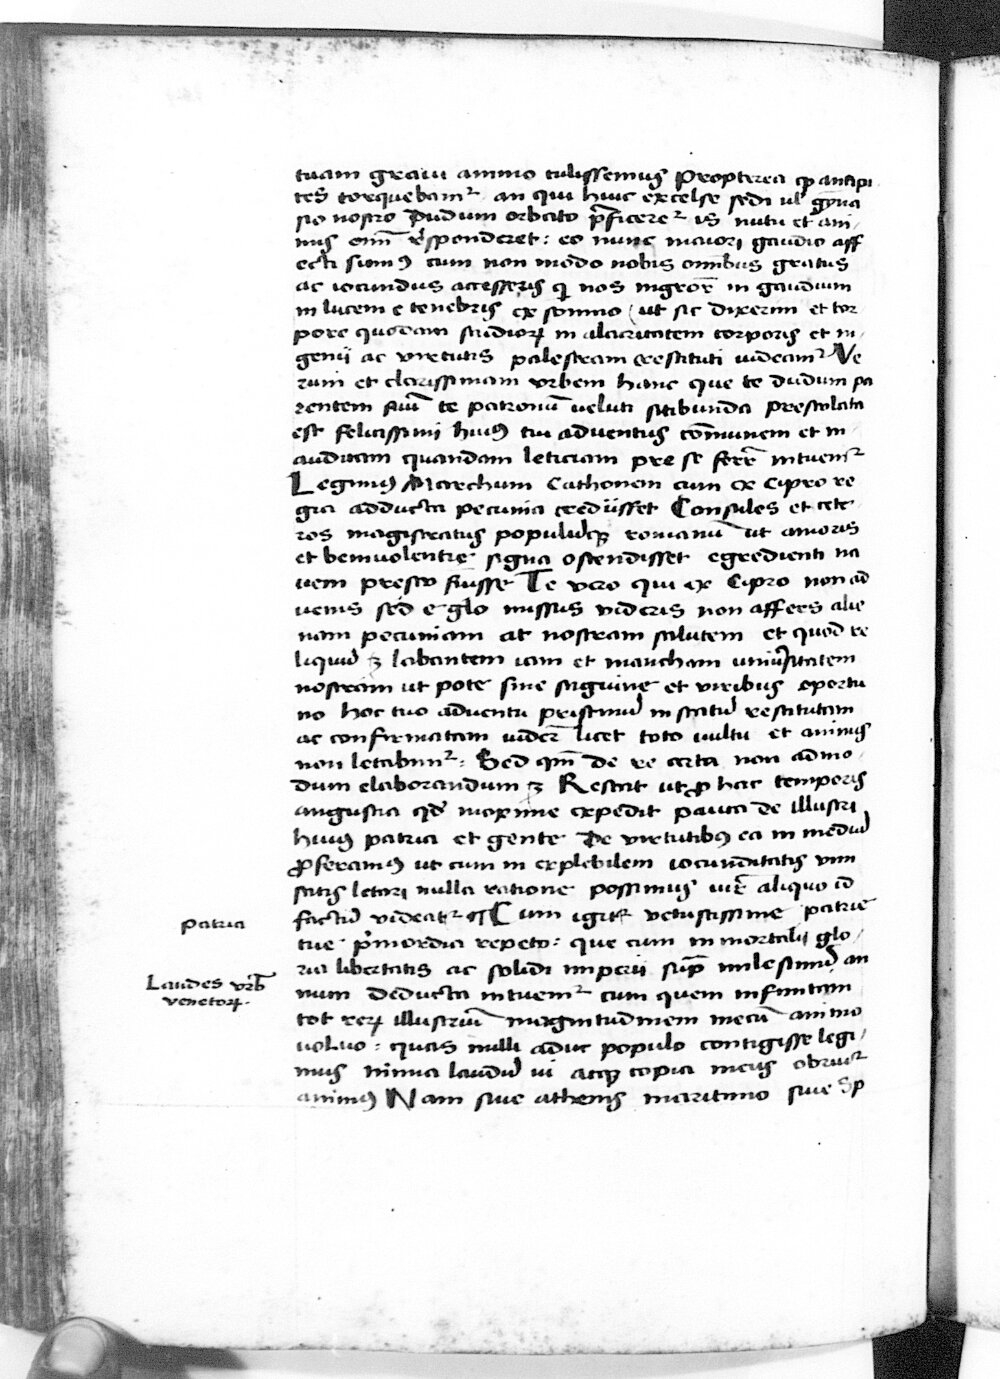 tuam graui animo tulissemus Propterea qp ancipi
tes torquebamr an qui huic excelse sedi ul gyna
sio nostro Dudum orbato pficerer is nutu et ani
mus oim responderet: eo nunc maiori gaudio aff
ecti sumus cum non modo nobis omibus gratus
ac iocundus accesseris qi nos ingror in gaudium
in lucem e tenebris ex somno (ut sic dixerim et tor
pore quodam studiorum in alacritatem corporis et in
genij ac virtutis palestram restituti uideamr Ve
rum et clarissimam urbem hanc que te dudum pa
rentem suum te patronum ueluti sitibunda prestolata
est felicissimi huius tui aduentus comunem et in
auditam quandam leticiam pre se ferr intuemr
Legimus Marchum Cathonem cum ex Cipro re
gia adducta pecunia rediisset Consules et cete
ros magistratus populumq romanum ut amoris
et beniuolentie signa ostendisset egredienti na
uem presto fuisse Te vero qui ex Cipro non ad
uenis sed e glo missus uideris non affers alie
nam pecuniam at nostram salutem et quod re
liquum ꝫ labantem iam et mancham uniusitatem
nostram ut pote sine sanguine et viribus oportu
no hoc tuo aduentu pristinum in statum restitutam
ac confirmatam uider licet toto uultu et animis
non letabimr: Sed qm de re certa non admo
dum elaborandum ꝫ Restat ut p hac temporis
angustia qd maxime expedit pauca de illustri
huius patria et gente De virtutibus ea in medium
proferamus ut cum in explebilem iocunditatis vim
satis letari nulla ratione possimus iure aliquo id
factum videatr Cum igitur vetustissime patrie
tue pmordia repeto: que cum inmortalij glo
ria libertatis ac solidi imperij sup milesimum an
num deducta intuemr cum quem infinitam
tot rerum illustrium magnitudinem mecum animo
uoluo: quas nulli adhuc populo contigisse legi
mus nimia laudum ui atq copia meus obruitr
animus Nam siue athenis maritimo siue Sp
patria
Laudes urb
venetorum